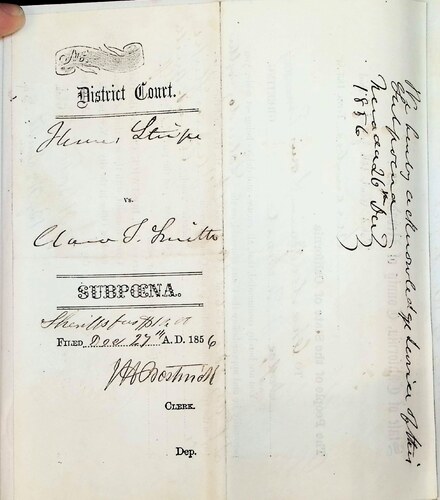 No.
District Court.
James Stripe
vs.
T. Smith
SUBPŒNA.
Sheriffs fees
FILED Dec 27th A.D. 1856
CLERK.
Dep.
We hereby acknowledge service of this
Subpoena
Nevada 26th Dec
1856